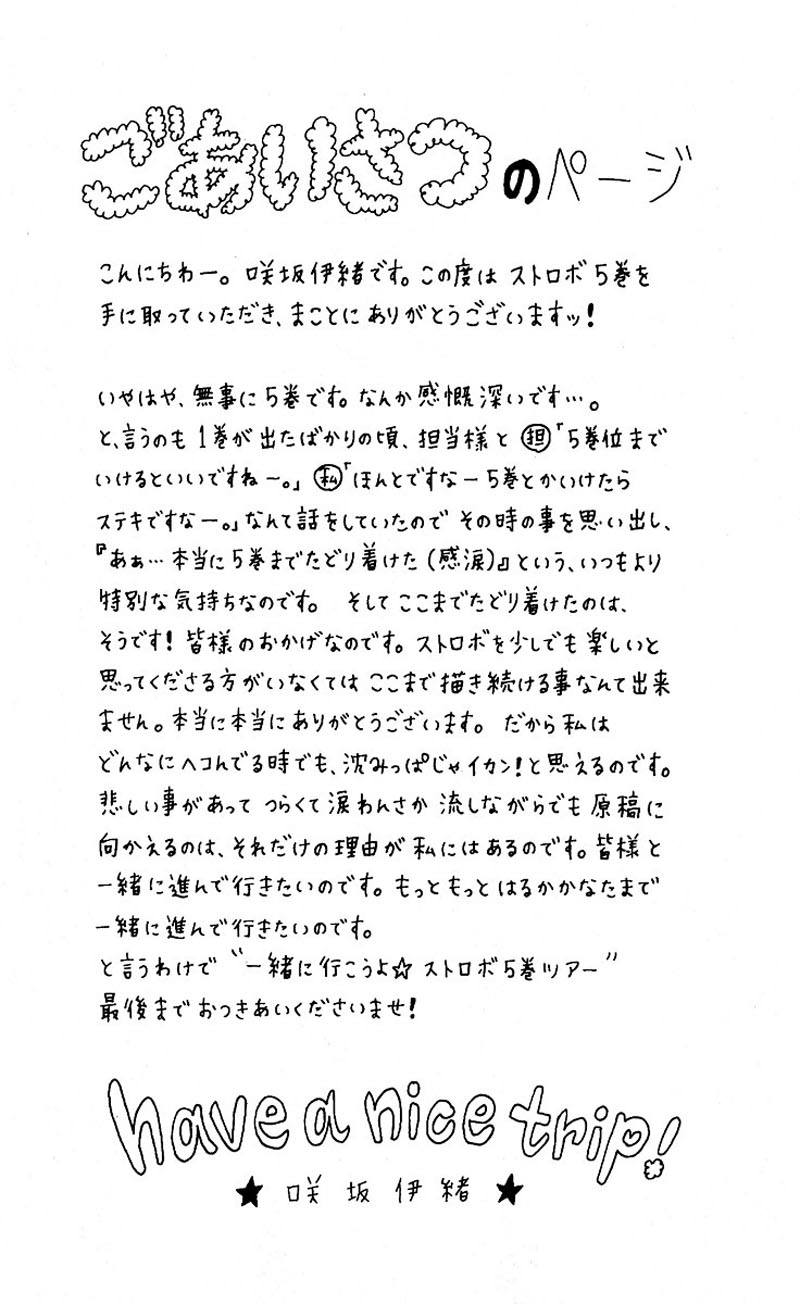 ごあいさつのページ
こんにちわー。咲坂伊緒です。この度は ストロボ5巻を
手に取っていただき、まことにありがとうございますッ!
いやはや、無事に5巻です。なんか感慨深いです…。
と、言うのも 1巻が出たばかりの頃、担当様と 担「5巻位まで
いけるといいですねー。」 私「ほんとですなー5巻とかいけたら
ステキですなー。」なんて話をしていたので その時の事を思い出し、
『あぁ…本当に5巻までたどり着けた(感涙)』という、いつもより
特別な気持ちなのです。 そして ここまでたどり着けたのは、
そうです! 皆様のおかげなのです。ストロボを少しでも楽しいと
思ってくださる方がいなくては ここまで描き続ける事なんて出来
ません。本当に本当にありがとうございます。 だから私は
どんなにヘコんでる時でも、沈みっぱじゃイカン!と思えるのです。
悲しい事があって つらくて涙わんさか 流しながらでも原稿に
向かえるのは、それだけの理由が私にはあるのです。皆様と
一緒に進んで行きたいのです。もっともっと はるかかなたまで
一緒に進んで行きたいのです。
と言うわけで “一緒に行こうよ☆ストロボ5巻ツアー”
最後までおつきあいくださいませ!
have a nice trip!
★ 咲坂伊緒 ★